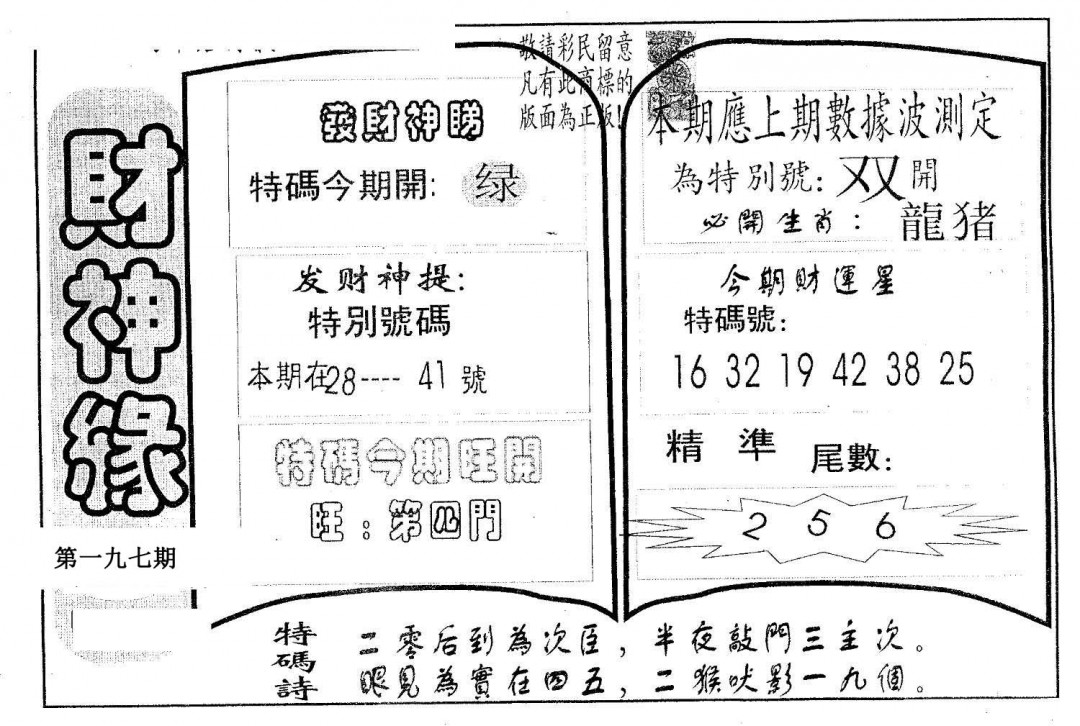 財神緣
第一九七期
敬請彩民留意
凡有此商標的
版面為正版!
發財神賜
特碼今期開: 绿
发财神提:
特別號碼
本期在28---- 41 號
特碼今期旺開
旺:第四門
本期應上期數據波測定
為特別號: 双 開
必開生肖: 龍猪
今期財運星
特碼號:
16 32 19 42 38 25
精準 尾數:
2 5 6
特碼詩
二零后到為次臣,半夜敲門三主次。
眼見為實在四五,二猴吠影一九個。